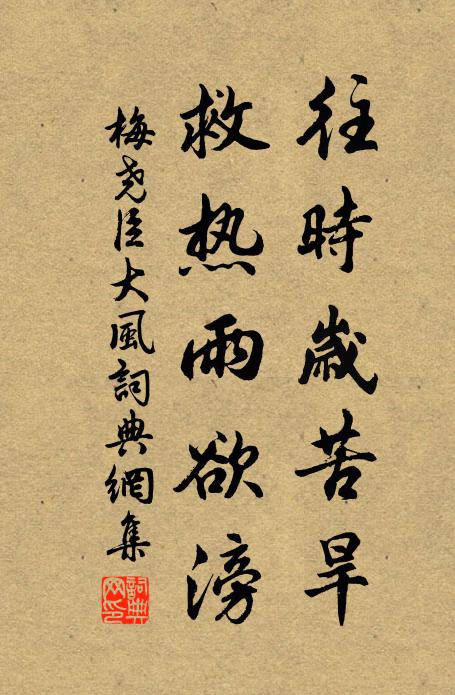 往時歲苦旱
救热雨欲滂
梅尧臣大風詞典網集
詞典网印